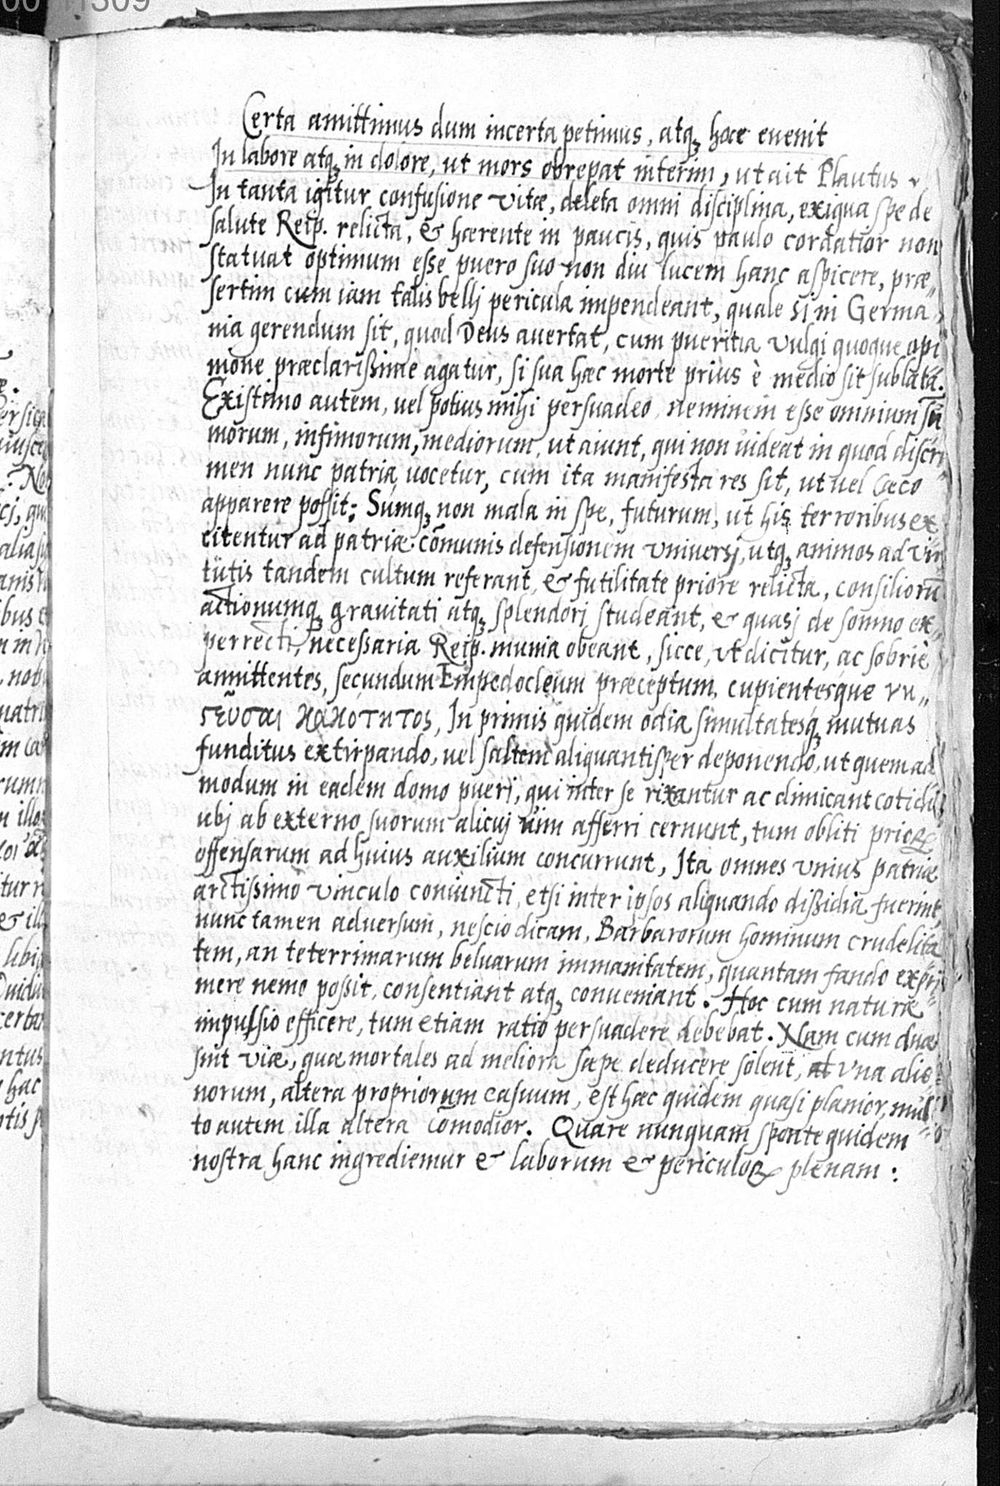 Certa amittimus dum incerta petimus, atq; hoce evenit
In labore atq; in dolore, ut mors obrepat interim, ut ait Plautus.
In tanta igitur confusione vitæ, deleta omni disciplina, exigua spe de
salute Reip. relicta, & hærente in paucis, quis paulo cordatior non
statuat optimum esse puero suo non diu lucem hanc aspicere, præ„
sertim cum iam talis bellj pericula impendeant, quale si in Germa„
nia gerendum sit, quod Deus avertat, cum pueritia vulgi quoque opi
mone præclarißime agatur, si sua hæc morte prius è medio sit sublata.
Existimo autem, vel potius mihj persuadeo, neminem esse omnium su
morum, infimorum, mediorum, ut aiunt, qui non videat in quod discri„
men nunc patria vocetur, cum ita manifesta res sit, ut vel Cæco
apparere possit: Sumq; non mala in spe, futurum, ut his terroribus ex„
citentur ad patriæ cõmunis defensionem universj, utq; animos ad vir„
tutis tandem cultum referant, & futilitate priore relicta, consiliorũ
actionumq; gravitati atq; splendorj studeant, & quasj de somno ex„
perrectj, necessaria Reip. munia obeant, sicce, ut dicitur, ac sobriè
amittentes, secundum Empedocleum præceptum, cupientesque νη„
ςεῦσαι κακοτητος, In primis quidem odia simultatesq; mutuas
funditus extirpando, vel saltem aliquantisper deponendo, ut quemad
modum in eadem domo puerj, qui inter se rixantur ac dimicant cotidie,
ubj ab externo suorum alicuj vim afferri cernunt, tum obliti prioꝝ
offensarum ad huius auxilium concurrunt, Ita omnes unius patriæ
arctissimo vinculo coniunctj, etsi inter ipsos aliquando dißidia fuerint,
nunc tamen adversum, nescio dicam, Barbarorum hominum crudelita„
tem, an teterrimarum beluarum immanitatem, quantam fando expri„
mere nemo possit, consentiant atq; conveniant. Hoc cum naturæ
impulsio efficere, tum etiam ratio persuadere debebat. Nam cum duæ
sint viæ, quæ mortales ad meliora sæpe deducere solent, at una alie„
norum, altera propriorum casuum, est hæc quidem quasi planior, mul„
to autem illa altera comodior. Quare nunquam sponte quidem
nostra hanc ingrediemur & laborum & periculoꝝ plenam: